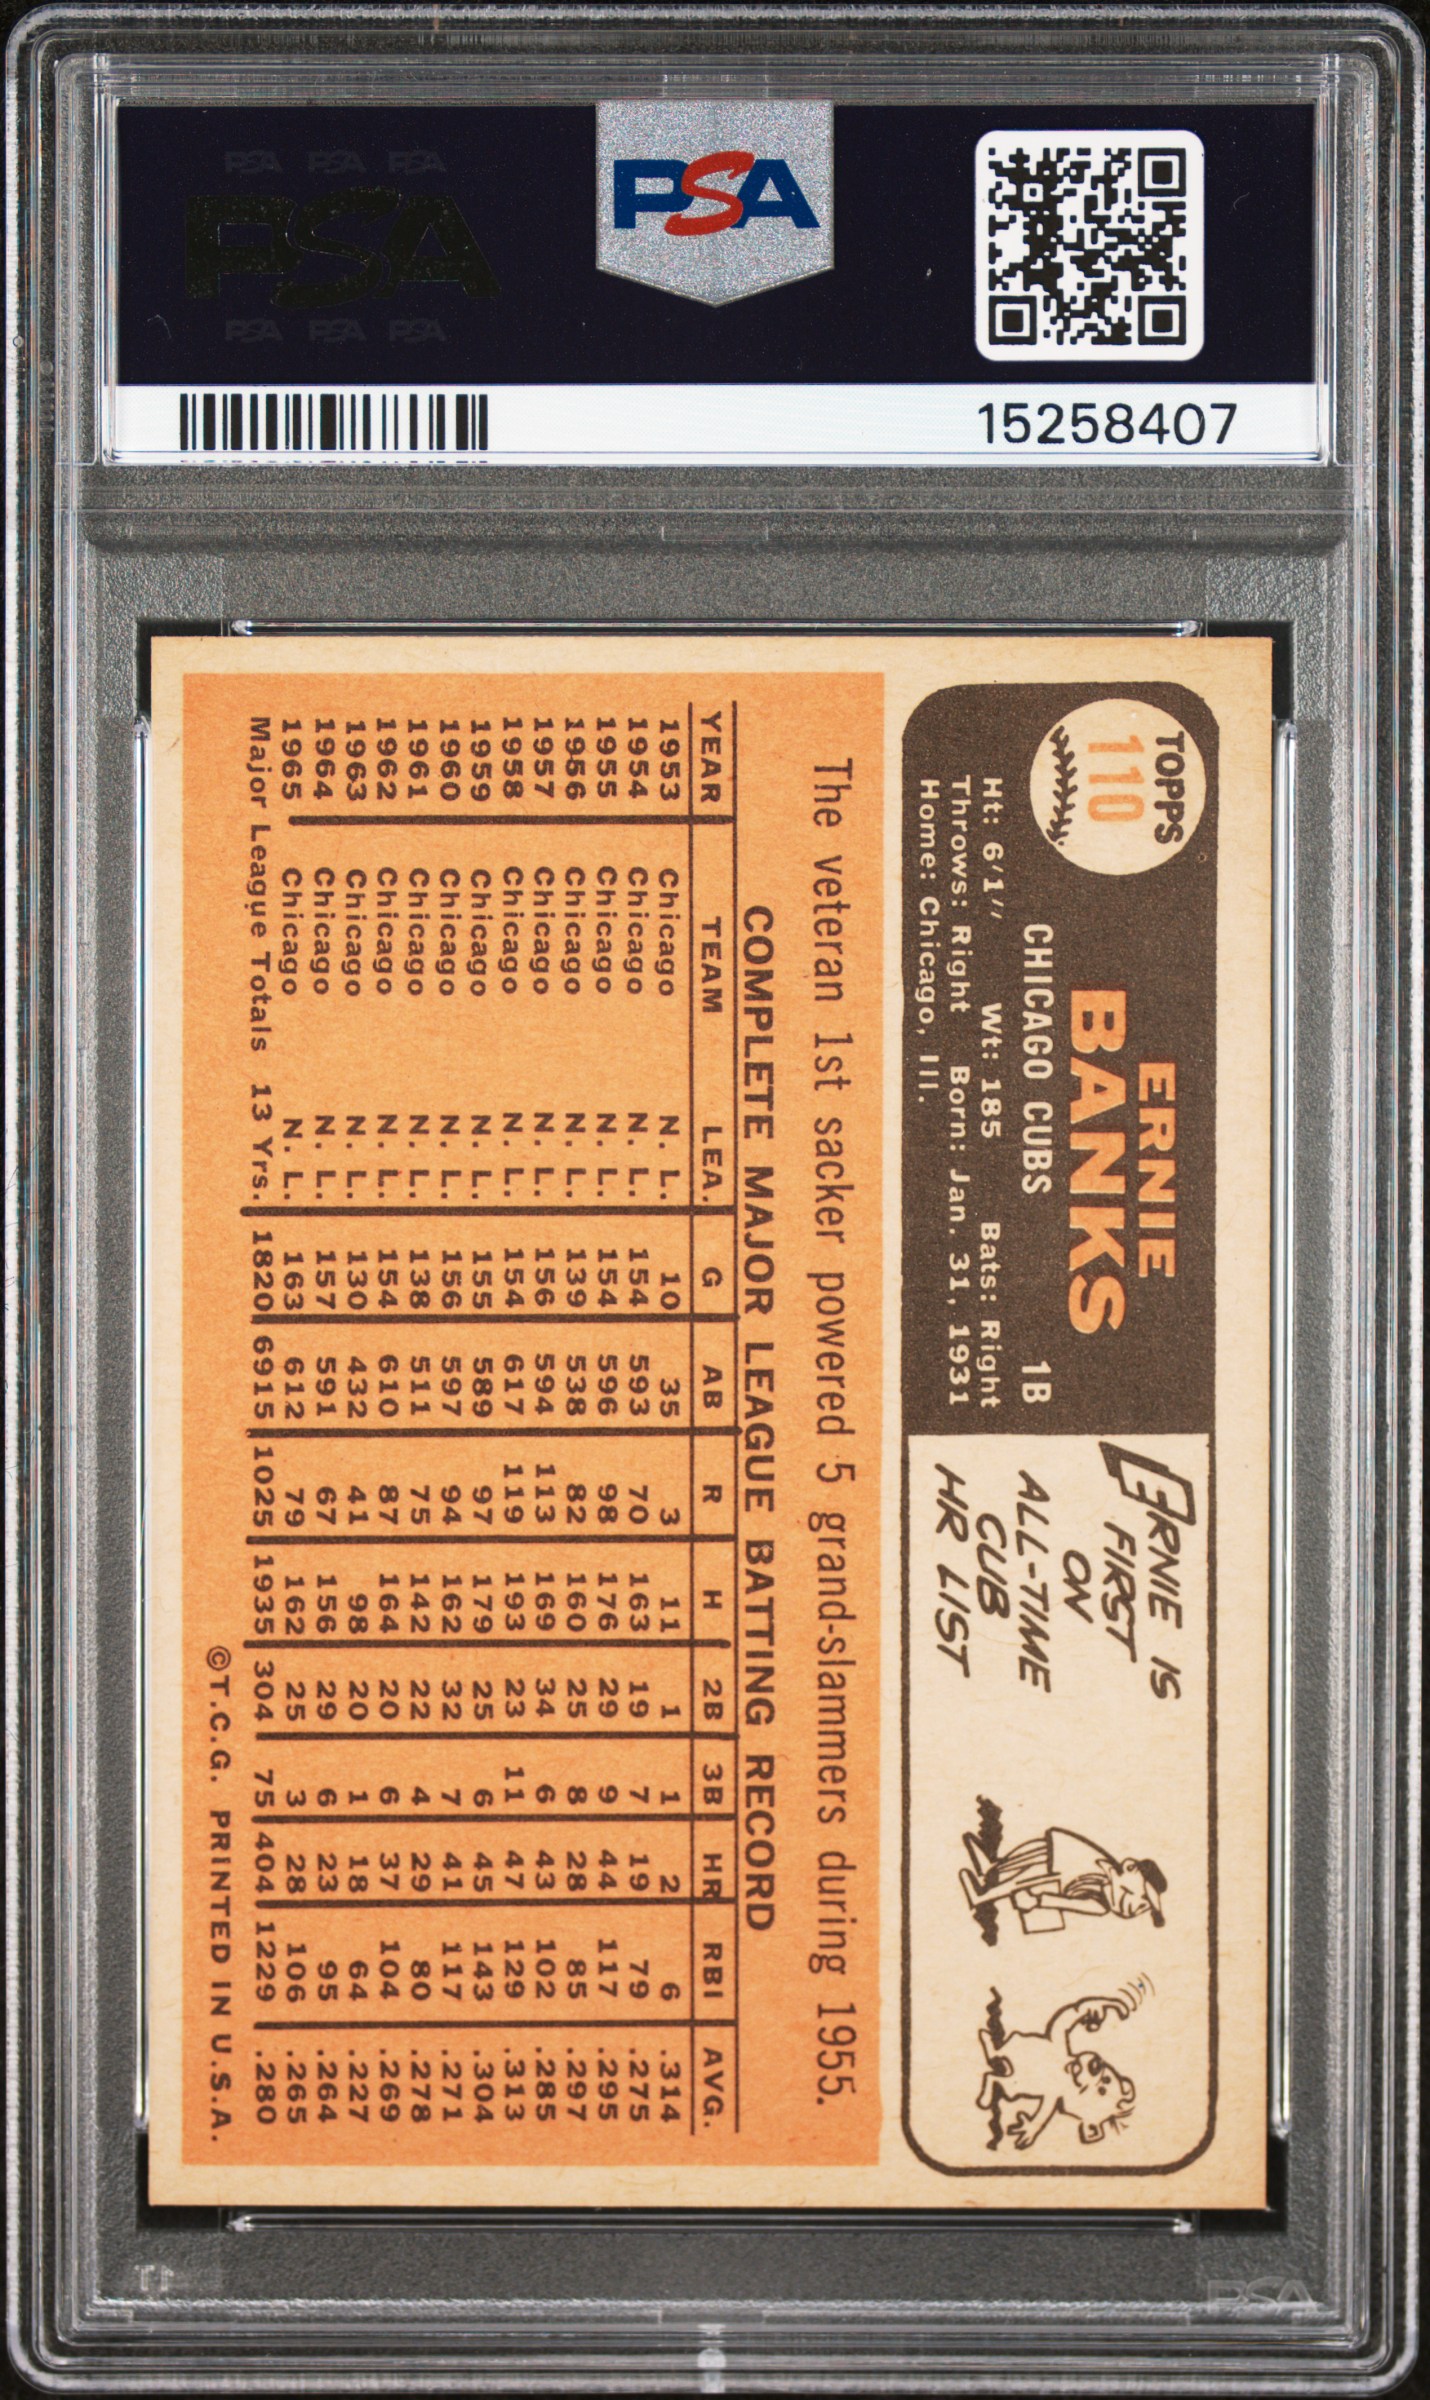 PSA PSA PSA
PSA
PSA PSA PSA
PSA
15258407
TOPPS
110
ERNIE
BANKS
CHICAGO CUBS 1B
Ht: 6'1" Wt: 185 Bats: Right
Throws: Right Born: Jan. 31, 1931
Home: Chicago, Ill.
ERNIE IS
FIRST
ON
ALL-TIME
CUB
HR LIST
The veteran 1st sacker powered 5 grand-slammers during 1955.
COMPLETE MAJOR LEAGUE BATTING RECORD
YEAR TEAM LEA. G AB R H 2B 3B HR RBI AVG.
1953 Chicago N. L. 10 35 3 11 1 1 2 6 .314
1954 Chicago N. L. 154 593 70 163 19 7 19 79 .275
1955 Chicago N. L. 154 596 98 176 29 9 44 117 .295
1956 Chicago N. L. 139 538 82 160 25 8 28 85 .297
1957 Chicago N. L. 156 594 113 169 34 6 43 102 .285
1958 Chicago N. L. 154 617 119 193 23 11 47 129 .313
1959 Chicago N. L. 155 589 97 179 25 6 45 143 .304
1960 Chicago N. L. 156 597 94 162 32 7 41 117 .271
1961 Chicago N. L. 138 511 75 142 22 4 29 80 .278
1962 Chicago N. L. 154 610 87 164 20 6 37 104 .269
1963 Chicago N. L. 130 432 41 98 20 1 18 64 .227
1964 Chicago N. L. 157 591 67 156 29 6 23 95 .264
1965 Chicago N. L. 163 612 79 162 25 3 28 106 .265
Major League Totals 13 Yrs. 1820 6915 1025 1935 304 75 404 1229 .280
©T.C.G. PRINTED IN U.S.A.
PSA